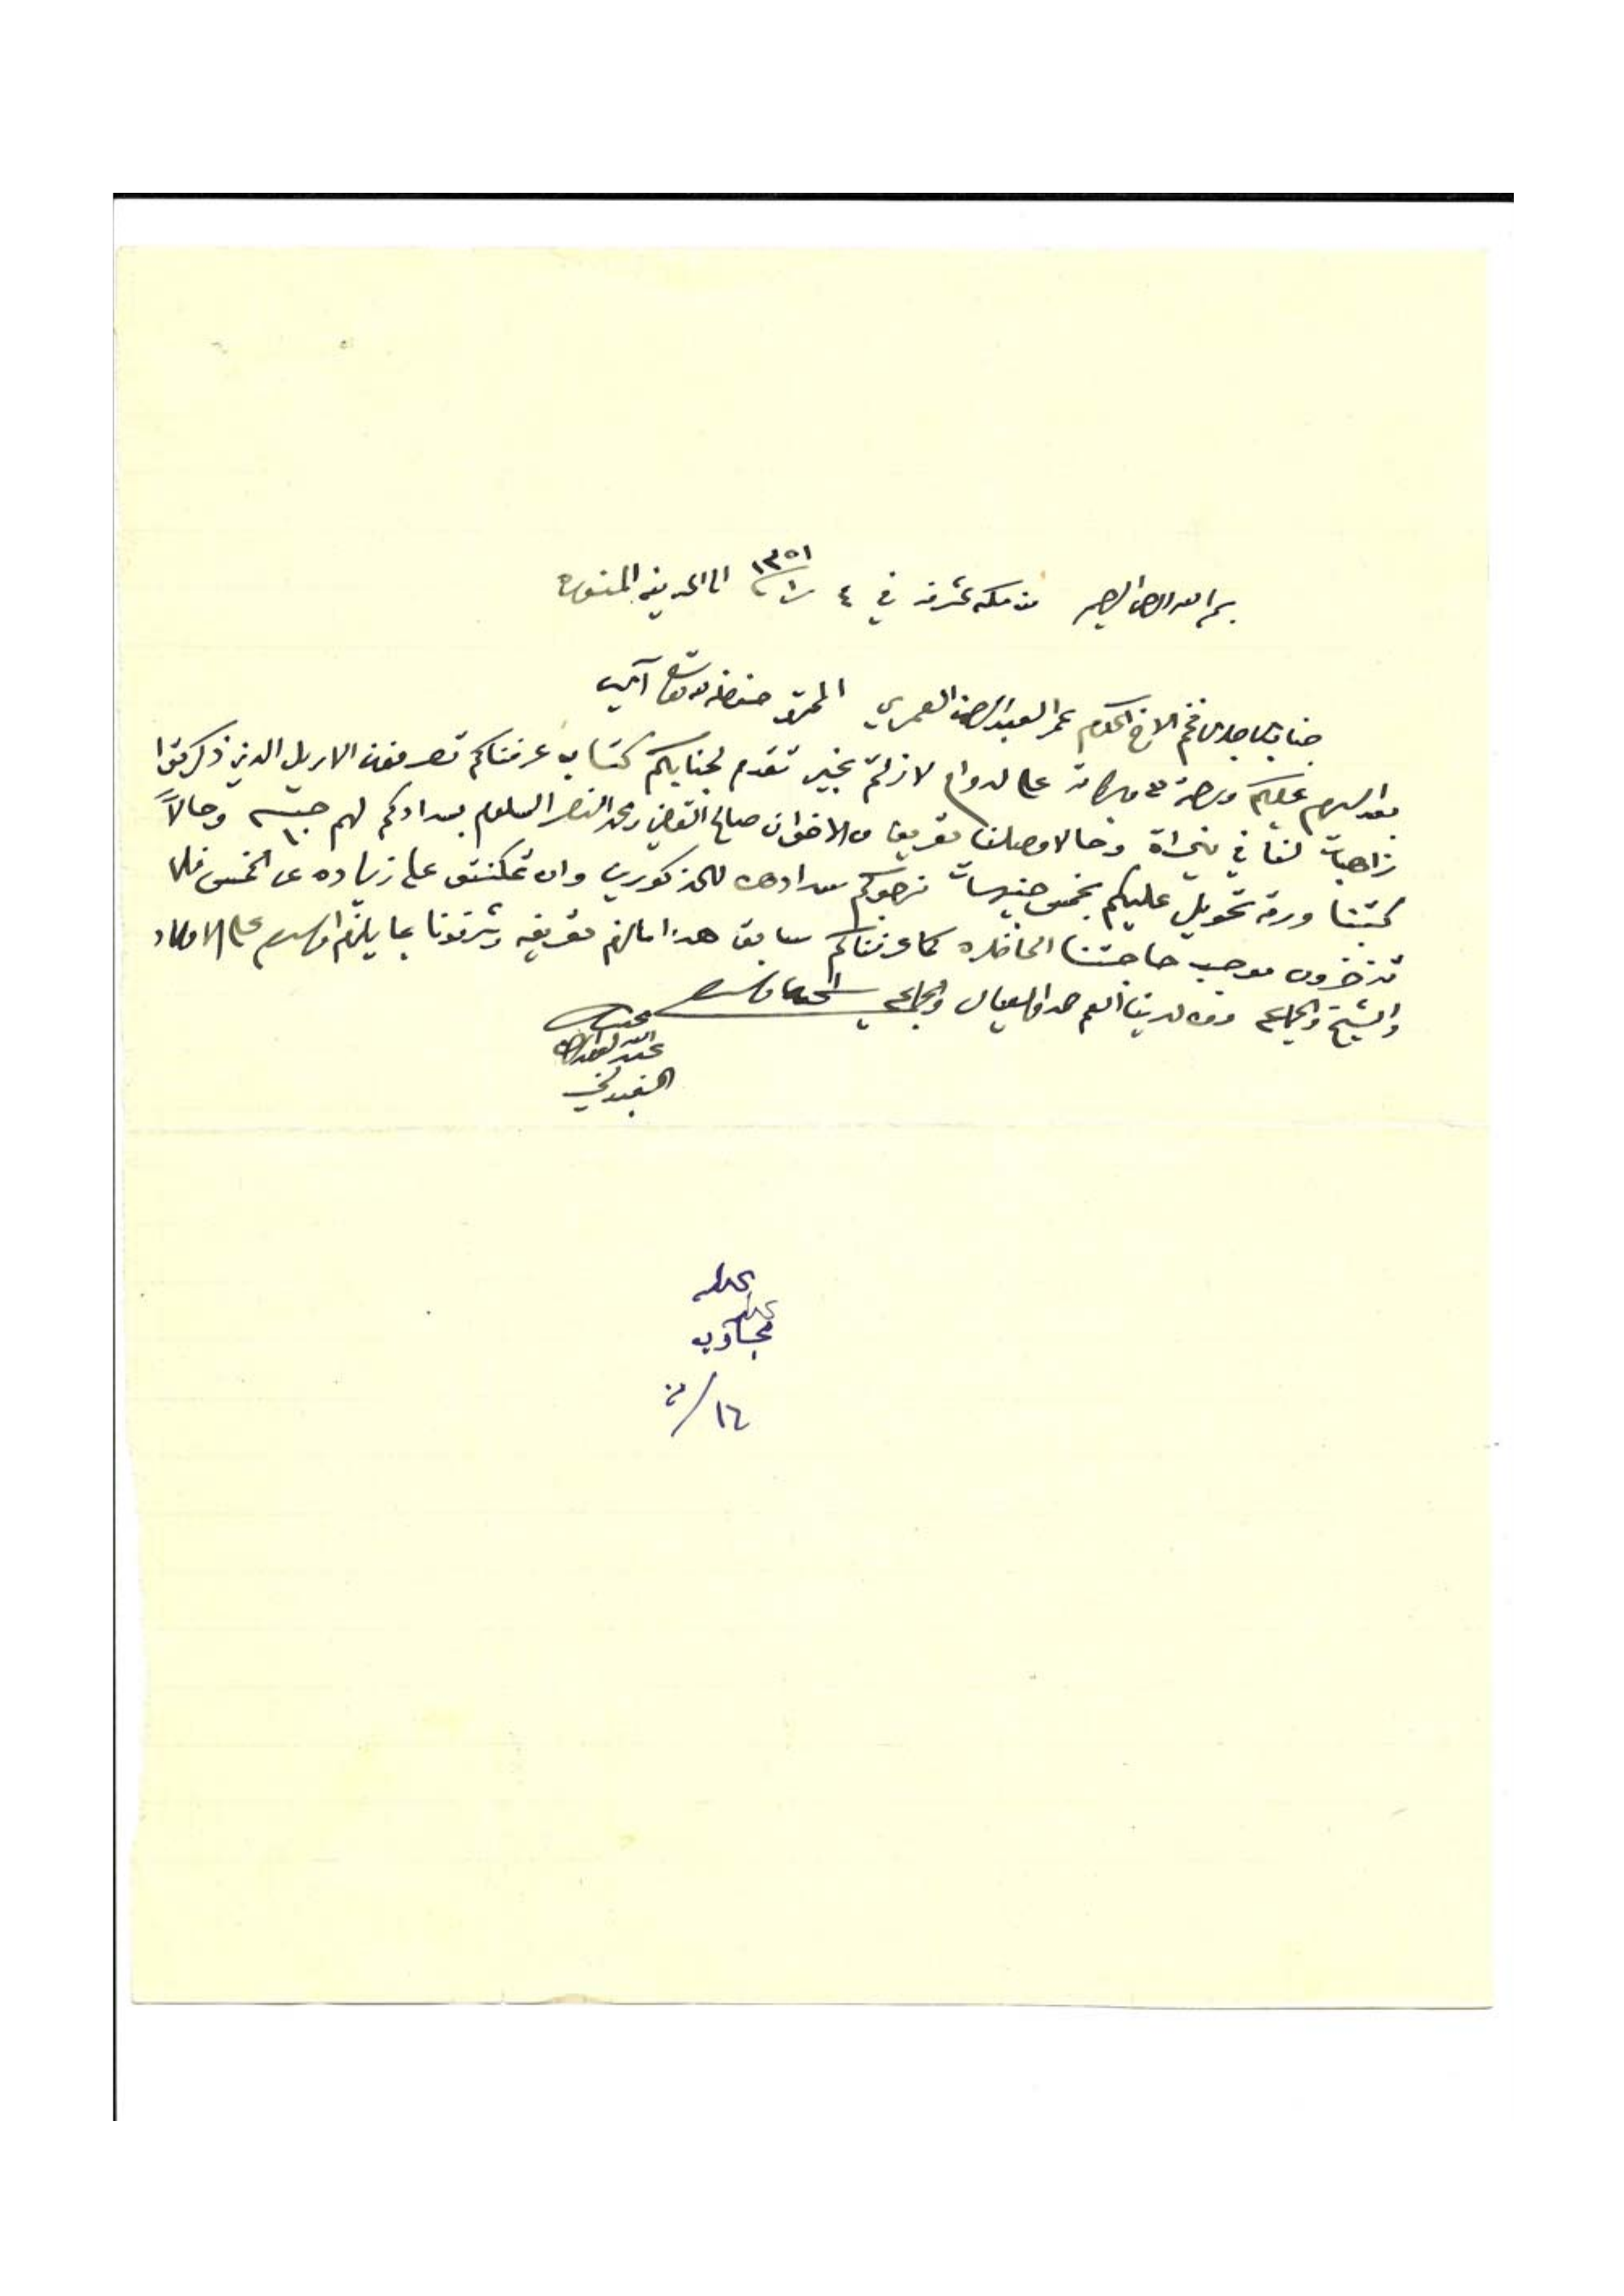 بسم الله الرحمن الرحيم من مكه المشرفه في ٤ ١٣٥١ الى المدينه المنوره
جناب الاجل الافخم الاخ المكرم عمر العبدالرحمن العمري المحترم حفظه الله تعالى آمين
بعد السلام عليكم ورحمة الله وبركاته على الدوام لازلتم بخير تقدم لجنابكم كتاب عرفناكم تصرفون الاربل الذي ذكرتوا
زاهبات لنا في وحالا وصلنا تعريف من الاخوان صالح القاضي ومحمد النصر السلوم بسدادكم لهم جنيه ١٠ وحالاً
كتبنا ورقة تحويل عليكم بخمس جنيهات نرجوكم سدادهن للمذكورين وان تمكنتو على زياده عن الخمس فلا
تذخرون موجب حاجتنا الحاضره كما عرفناكم سابق هذا مالزم تعريفه وشرفونا بما يلزم والسلام على الاولاد
والشيخ والجماعه ومن لدينا العم حمد والعيال والجماعه والسلام
محبكم
عبدالله العبدالرحمن
مجاوب
١٦/